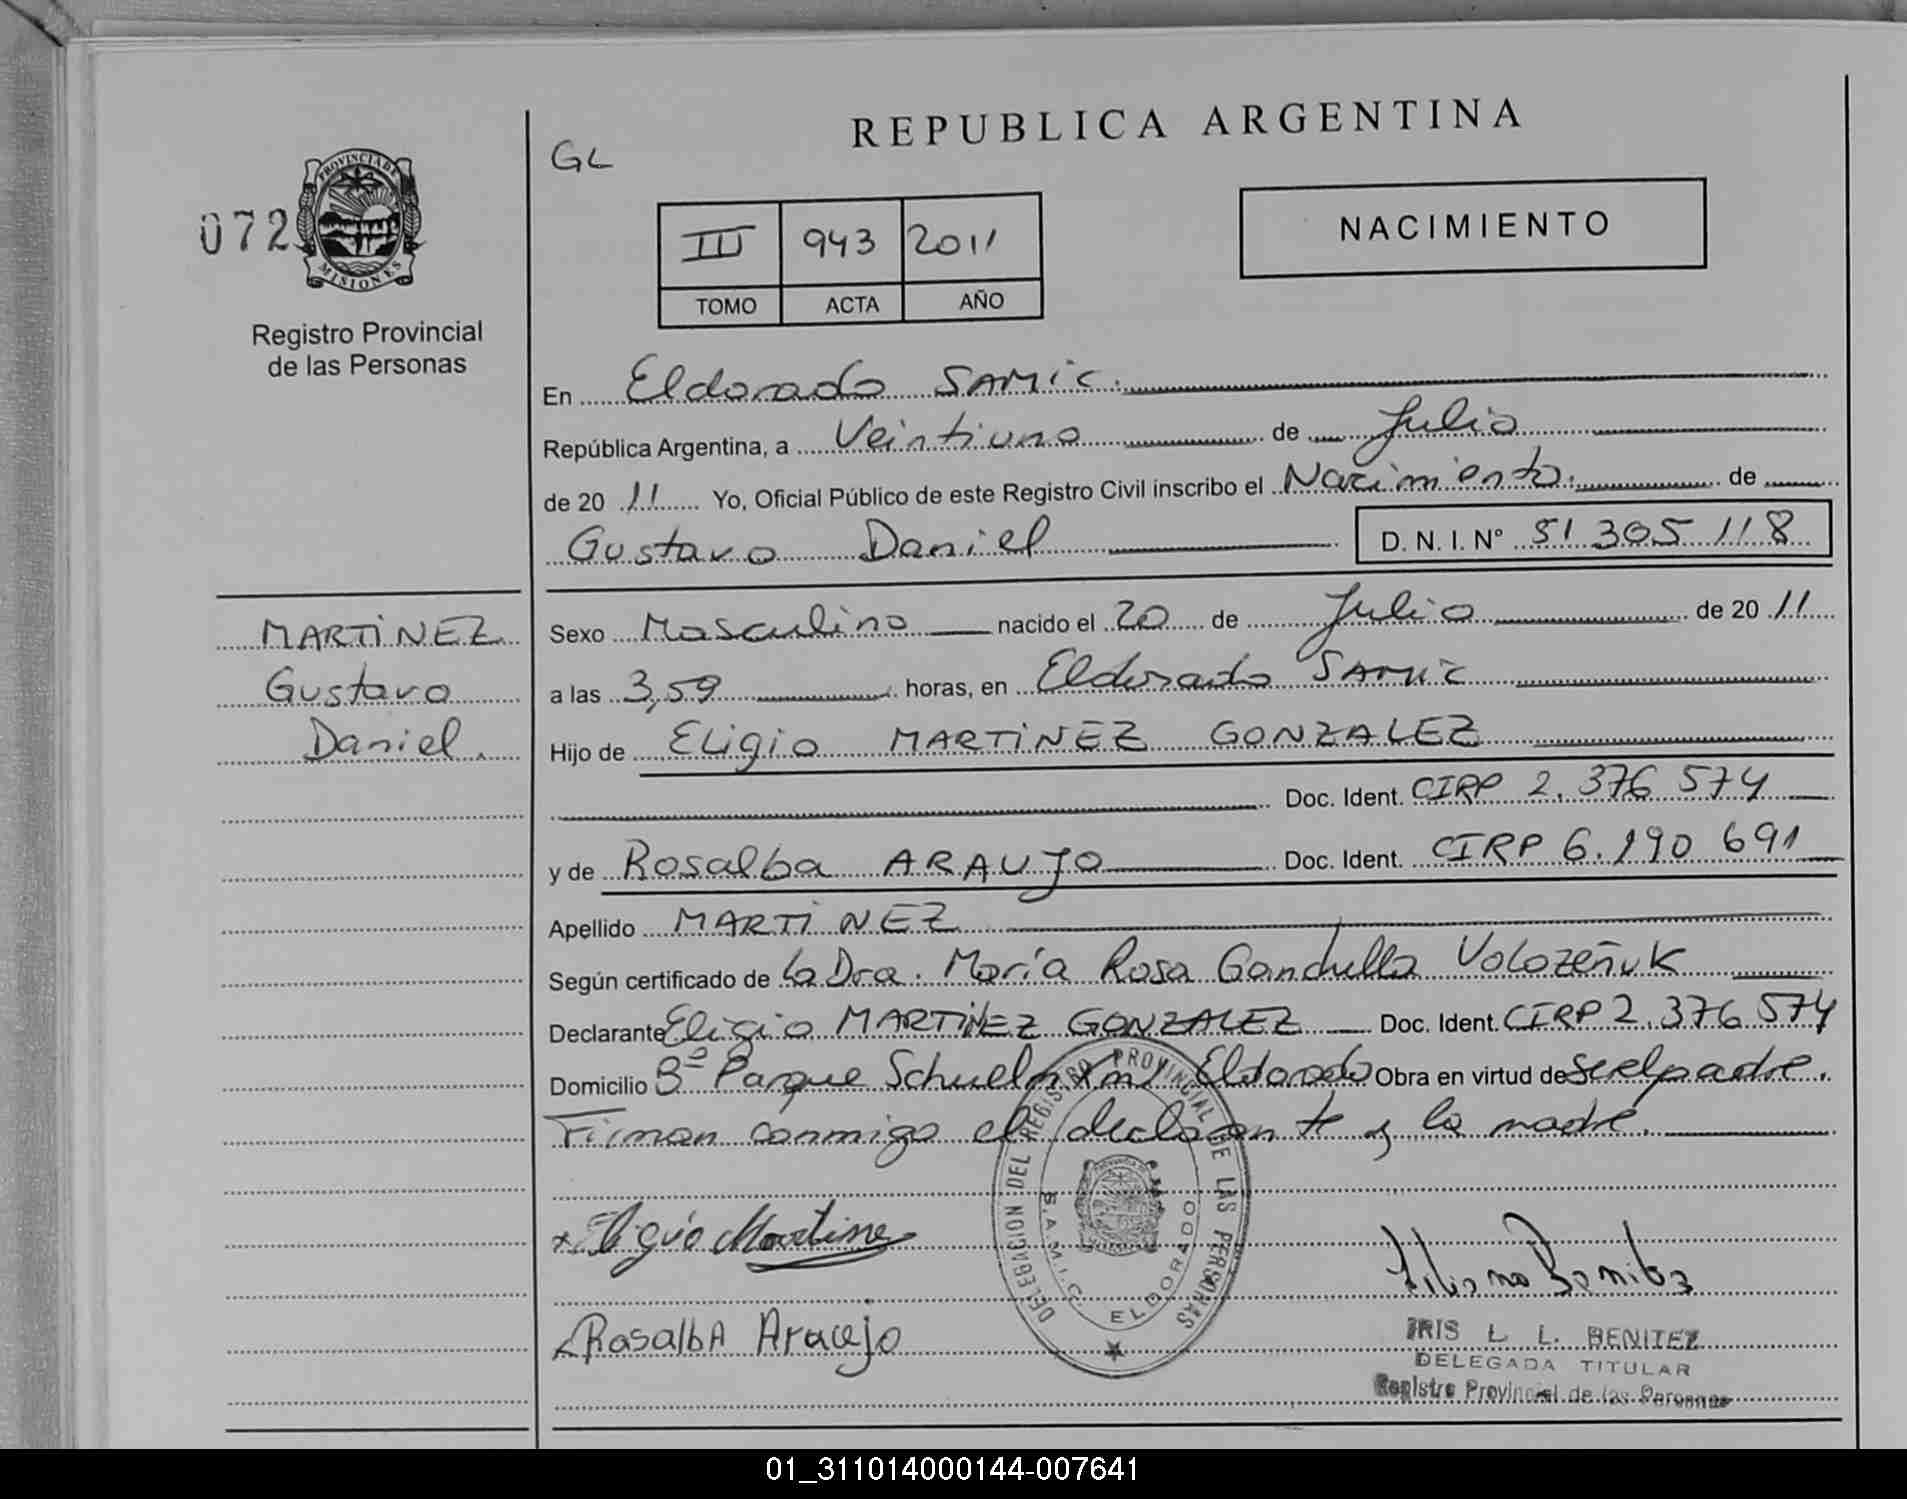 REPUBLICA ARGENTINA
GL
072
PROVINCIA DE MISIONES
Registro Provincial
de las Personas
III 943 2011
TOMO ACTA AÑO
NACIMIENTO
En Eldorado SAMIC.
República Argentina, a Veintiuno de Julio
de 20 11 Yo, Oficial Público de este Registro Civil inscribo el Nacimiento. de
Gustavo Daniel D. N. I. N° 51 305 118
MARTINEZ
Gustavo
Daniel.
Sexo Masculino nacido el 20 de Julio de 20 11
a las 3,59 horas, en Eldorado SAMIC
Hijo de Eligio MARTINEZ GONZALEZ
Doc. Ident. CIRP 2.376 574
y de Rosalba ARAUJO Doc. Ident. CIRP 6.190 691
Apellido MARTINEZ
Según certificado de la Dra. María Rosa Gandulla Volozeñuk
Declarante Eligio MARTINEZ GONZALEZ Doc. Ident. CIRP 2.376 574
Domicilio Bº Parque Schuelm Eldorado Obra en virtud de ser el padre.
Firman conmigo el declarante y la madre.
DELEGACION DEL REGISTRO PROVINCIAL DE LAS PERSONAS
S.A.M.I.C. ELDORADO
Eligio Martine
Rosalba Araujo
IRIS L. L. BENITEZ
DELEGADA TITULAR
Registro Provincial de las Personas
01_311014000144-007641